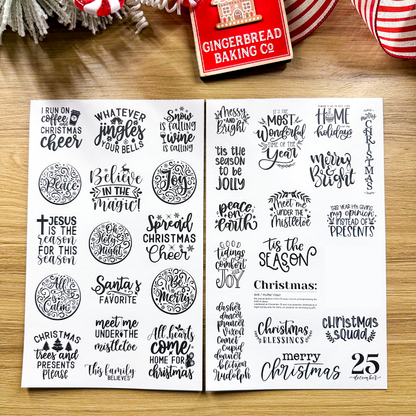 GINGERBREAD
BAKING CO
I RUN ON
coffee
AND
CHRISTMAS
cheer
WHATEVER
jingles
YOUR BELLS
Snow
is falling
wine
is calling
Peace
Believe
IN THE
magic!
Joy
JESUS
IS THE
REASON
FOR THIS
SEASON
Oh
Holy
Night
SPREAD
CHRISTMAS
Cheer
All
is
Calm
Santa's
FAVORITE
Be
Merry
CHRISTMAS
trees and
PRESENTS
please
meet me
UNDER THE
mistletoe
This family
BELIEVES
All hearts
COME
HOME FOR
christmas
Messy
AND
Bright
IT'S THE
MOST
Wonderful
TIME OF THE
Year
HOME
holidays
MERRY
CHRISTMAS
'tis the
season
TO BE
JOLLY
Merry
&
Bright
peace
on
earth
meet me
UNDER THE
mistletoe
THIS YEAR I'M GIVING
my opinion
INSTEAD OF
PRESENTS
GOOD
tidings
OF
comfort
AND
JOY
'tis the
SEASON
Christmas:
dasher
dancer
prancer
vixen
comet
cupid
donner
blitzen
rudolph
Christmas
BLESSINGS
christmas
SQUAD
merry
Christmas
25
december